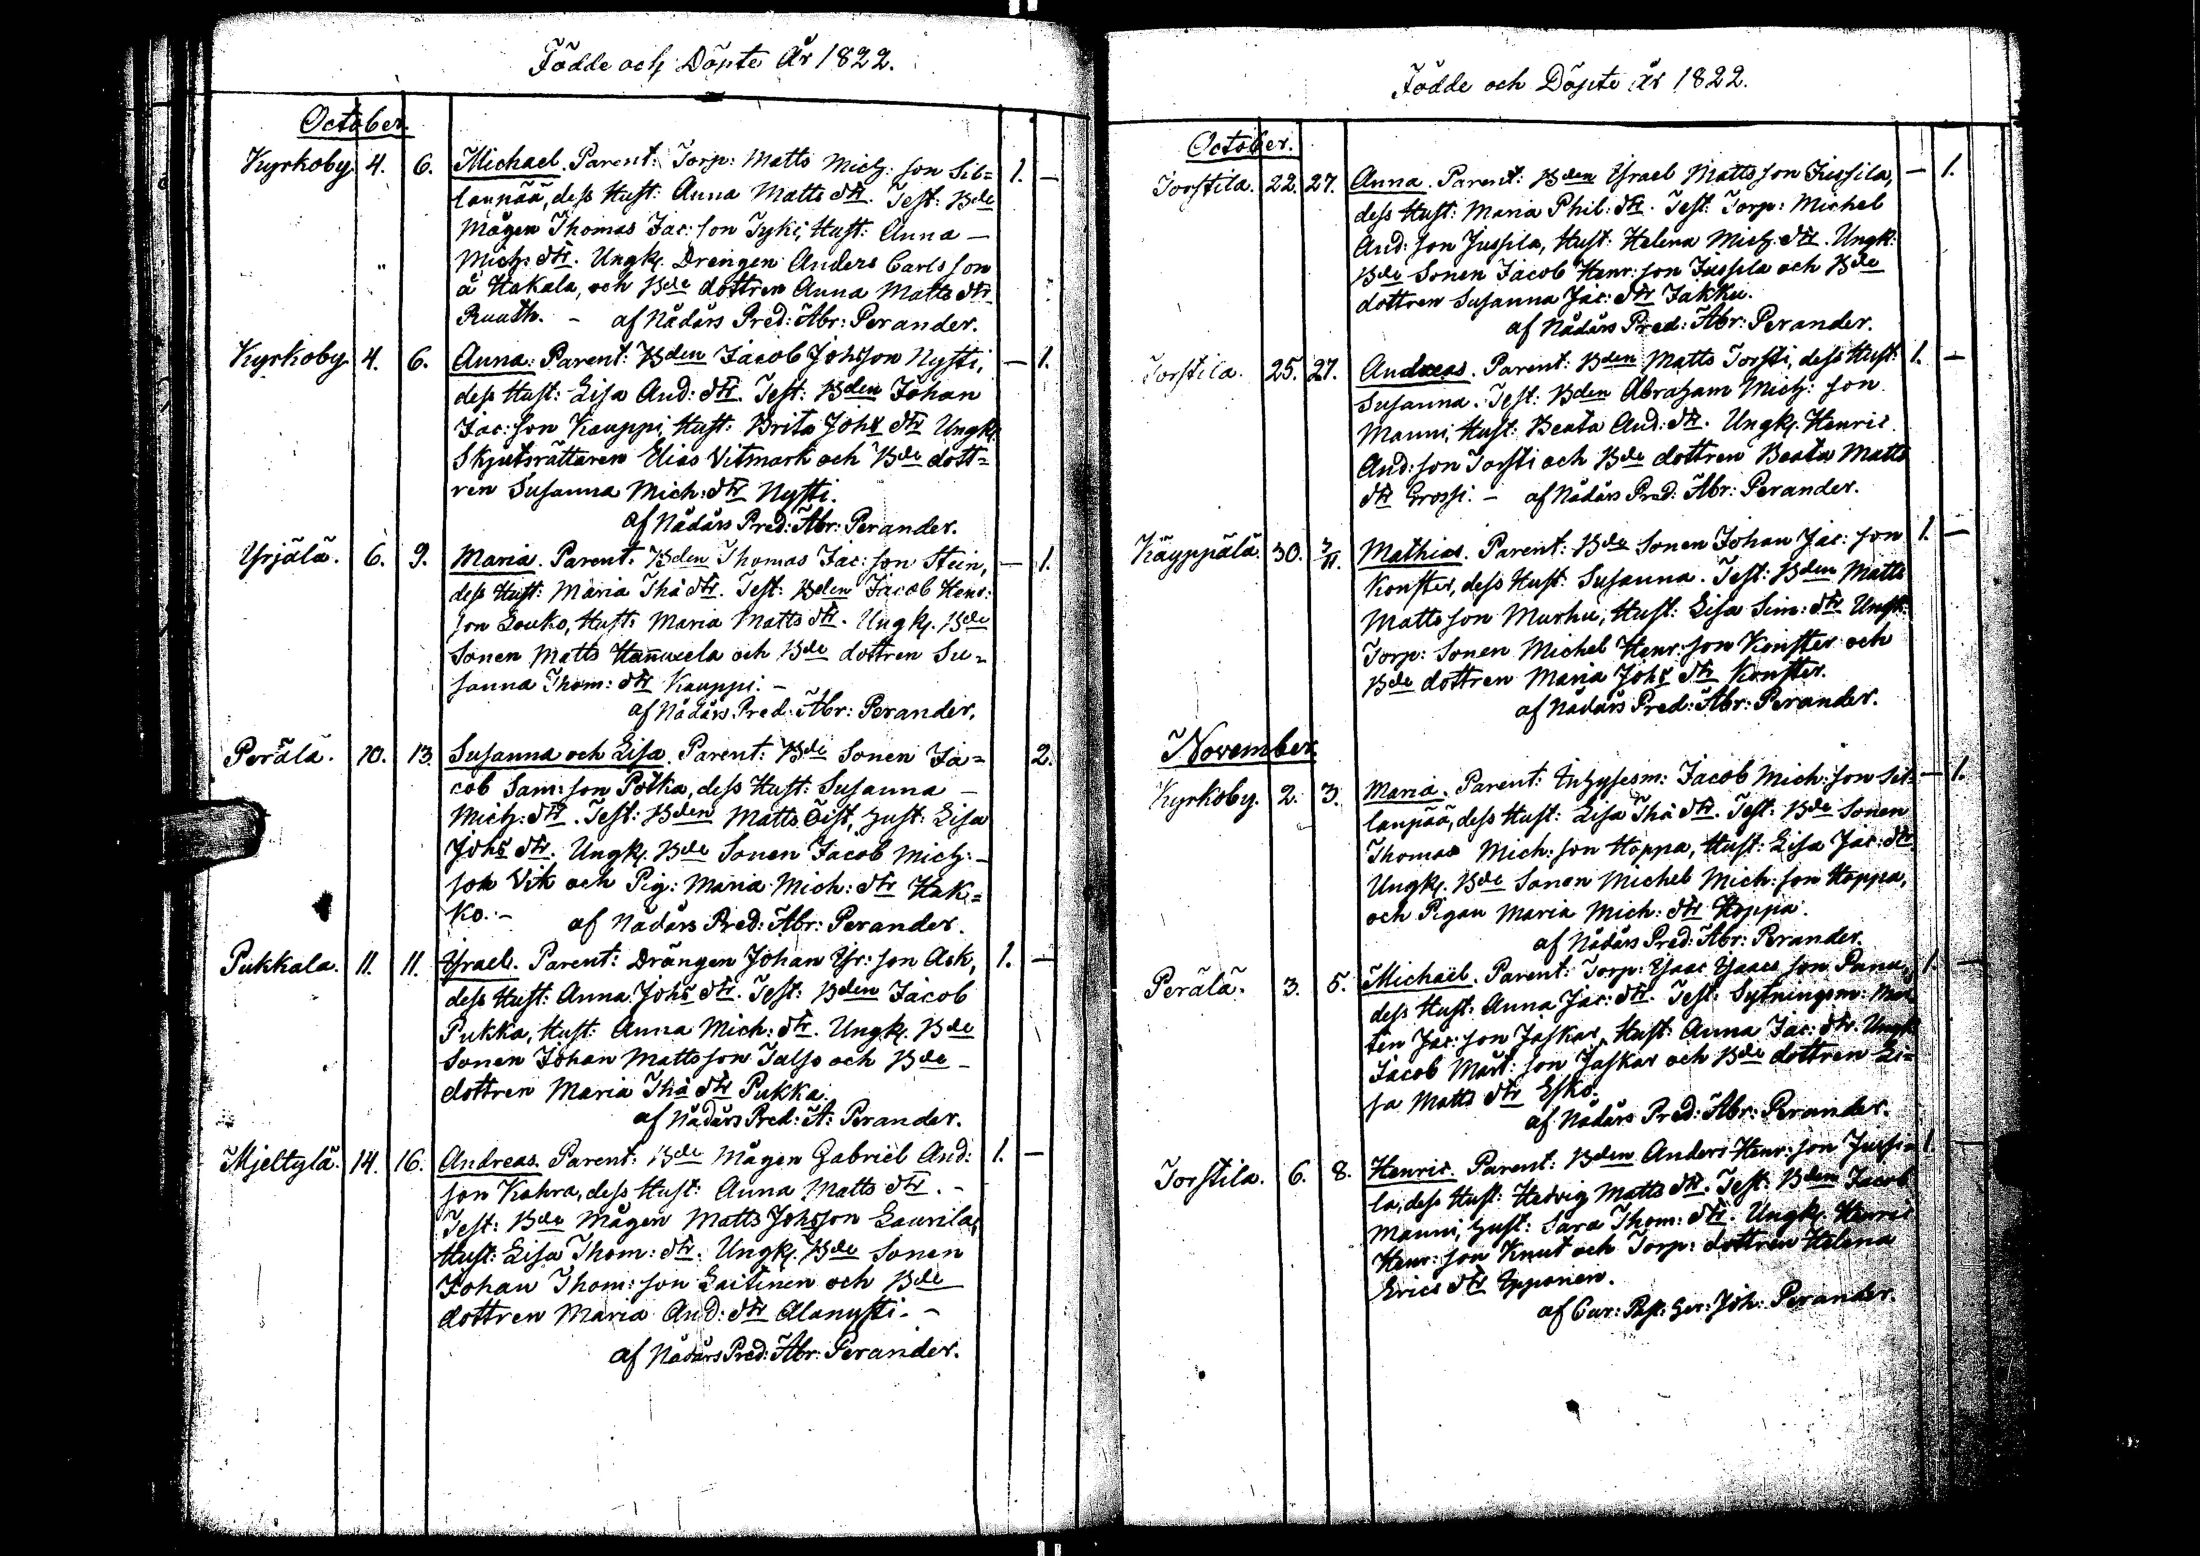 Födde och Döpte År 1822.
October.
Kyrkoby 4. 6. Michael. Parent: Torp: Matts Mich: son Sil= 1. —
lanpää, dess Hust: Anna Matts dtr. Test: Bde
Mågen Thomas Jac: son Tyki, Hust: Anna —
Mich: dtr. Ungk. Drengen Anders Carls son
å Hakala, och Bde dottren Anna Matts dtr
Ruuth. - af Nådårs Pred: Abr: Perander.
Kyrkoby 4. 6. Anna. Parent: Bden Jacob Johsson Nysti, — 1.
dess Hust: Lisa And: dtr. Test: Bden Johan
Jac: son Kauppi, Hust: Brita Johs dtr Ungk.
Skjutsrättaren Elias Vitmark och Bde dott=
ren Susanna Mich: dtr Nysti.
af Nådårs Pred: Abr: Perander.
Yrjälä. 6. 9. Maria. Parent: Bden Thomas Jac: son Stein, — 1.
dess Hust: Maria Thå dtr. Test: Bden Jacob Henr:
son Louko, Hust: Maria Matts dtr. Ungk. Bde
Sonen Matts Hannuxela och Bde dottren Su=
sanna Thom: dtr Kauppi. -
af Nådårs Pred: Abr: Perander.
Perälä. 10. 13. Susanna och Lisa. Parent: Bde Sonen Ja= 2.
cob Sam: son Potka, dess Hust: Susanna —
Mich: dtr. Test: Bden Matts Öist, Hust: Lisa
Johs dtr. Ungk. Bde Sonen Jacob Mich: -
son Vik och Pig: Maria Mich: dtr Hak=
ko. - af Nådårs Pred: Abr: Perander.
Pukkala. 11. 11. Ysrael. Parent: Drängen Johan Ysr: son Ask, 1. —
dess Hust: Anna Johs dtr. Test: Bden Jacob
Pukka, Hust: Anna Mich: dtr. Ungk. Bde
Sonen Johan Mattsson Talso och Bde -
dottren Maria Thå dtr Pukka.
af Nådårs Pred: A: Perander.
Mjeltylä. 14. 16. Andreas. Parent: Bde Mågen Gabriel And: 1. —
son Kahra, dess Hust: Anna Matts dtr. -
Test: Bde Mågen Matts Johsson Laurila,
Hust: Lisa Thom: dtr. Ungk. Bde Sonen
Johan Thom: son Laitinen och Bde
dottren Maria And: dtr Alanysti. -
af Nådårs Pred: Abr: Perander.
Födde och Döpte År 1822.
October.
Torstila. 22. 27. Anna. Parent: Bden Ysrael Matts son Jussila, — 1.
dess Hust: Maria Phil: dtr. Test: Torp: Michel
And: son Jussila, Hust: Helena Mich: dtr. Ungk:
Bde Sonen Jacob Henr: son Jussila och Bde
dottren Susanna Jac: dtr Jakku.
af Nådårs Pred: Abr: Perander.
Torstila. 25. 27. Andreas. Parent: Bden Matts Torsti, dess Hust: 1. —
Susanna. Test: Bden Abraham Mich: son
Manni, Hust: Beata And: dtr. Ungk. Henric
And: son Torsti och Bde dottren Beata Matts
dtr Grossi. - af Nådårs Pred: Abr: Perander.
Käyppälä. 30. 3/11. Mathias. Parent: Bde Sonen Johan Jac: son 1. —
Konster, dess Hust: Susanna. Test: Bden Matts
Matts son Murhu, Hust: Lisa Sim: dtr Ungk:
Torp: Sonen Michel Henr: son Konster och
Bde dottren Maria Johs dtr Konster.
af Nådårs Pred: Abr: Perander.
November
Kyrkoby. 2. 3. Maria. Parent: Inhysesm: Jacob Mich: son Sil= — 1.
lanpää, dess Hust: Lisa Thå dtr. Test: Bde Sonen
Thomas Mich: son Hoppa, Hust: Lisa Jac: dtr.
Ungk. Bde Sonen Michel Mich: son Hoppa,
och Pigan Maria Mich: dtr Hoppa.
af Nådårs Pred: Abr: Perander.
Perälä. 3. 5. Michaël. Parent: Torp: Ysaac Ysaacs son Panu, 1. —
dess Hust: Anna Jac: dtr. Test: Sytningsm: Mår
ten Jac: son Jaskar, Hust: Anna Jac: dtr. Ungk
Jacob Mårt: son Jaskar och Bde dottren Li=
sa Matts dtr Esko.
af Nådårs Pred: Abr: Perander.
Torstila. 6. 8. Henric. Parent: Bden Anders Henr: son Jussi= 1. —
la, dess Hust: Hedvig Matts dtr. Test: Bden Jacob
Manni, Hust: Sara Thom: dtr. Ungk. Henric
Henr: son Knut och Torp: dottren Helena
Erics dtr Epponen.
af Cur: Past: Ger: Joh: Perander.